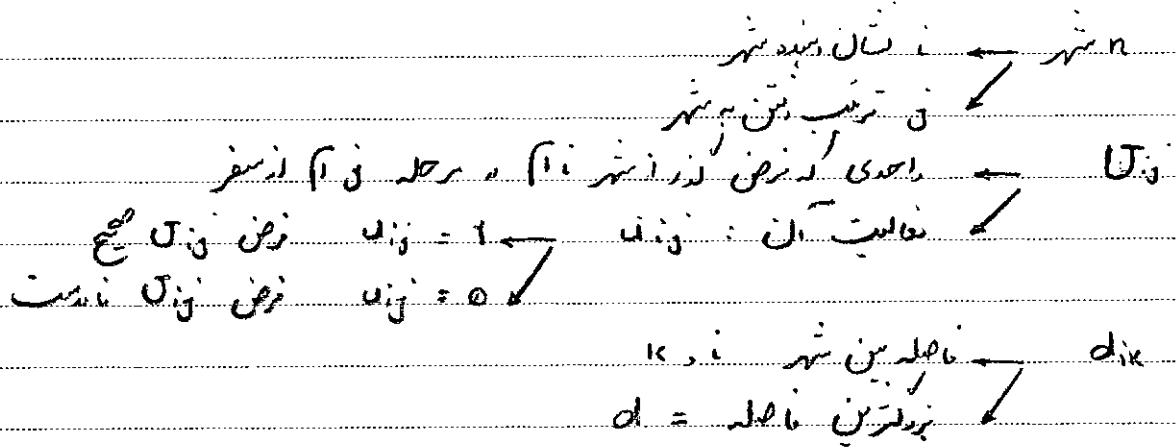 n شهر ← i نشان دهنده شهر
j ترتیب رفتن به شهر
Uij ← واحدی که فرض گذر از شهر i ام در مرحله j ام از سفر
فعالیت آن : uij ← uij = 1 فرض Uij صحیح
uij = 0 فرض Uij نادرست
dik ← فاصله بین شهر i و k
بزرگترین فاصله = d